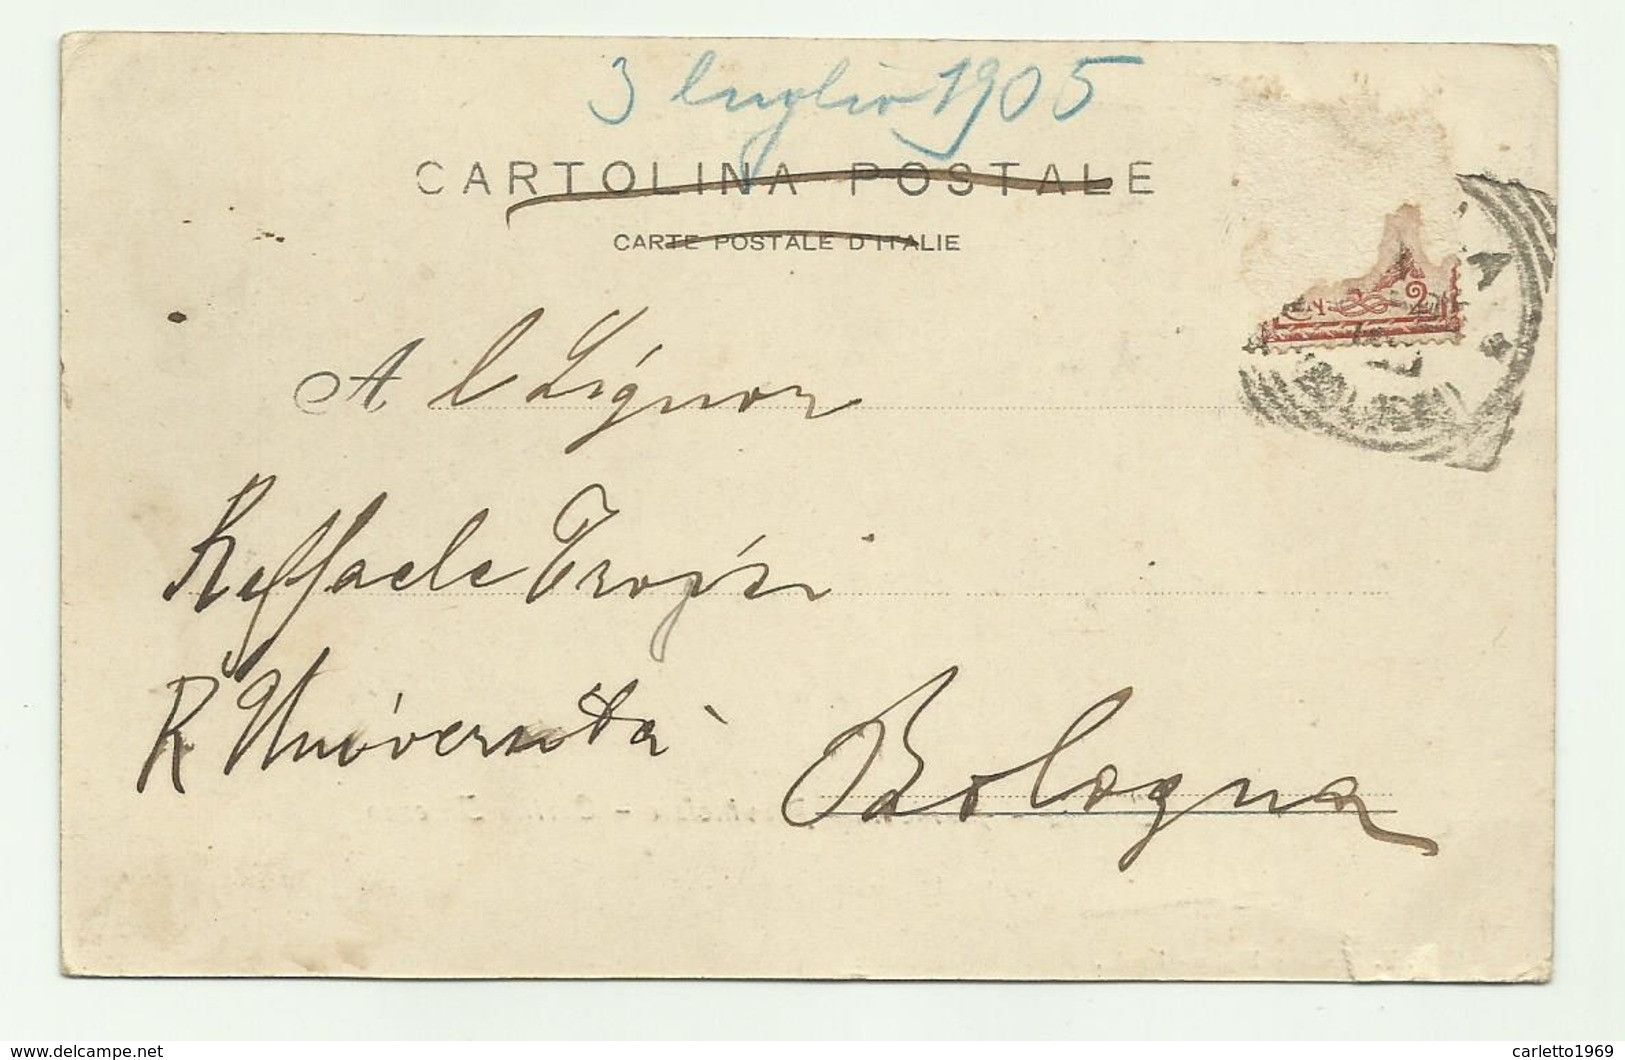 3 luglio 1905
CARTOLINA POSTALE
CARTE POSTALE D'ITALIE
Al Signor
Raffaele
R Università
Bologna
delcampe.net
carletto1969